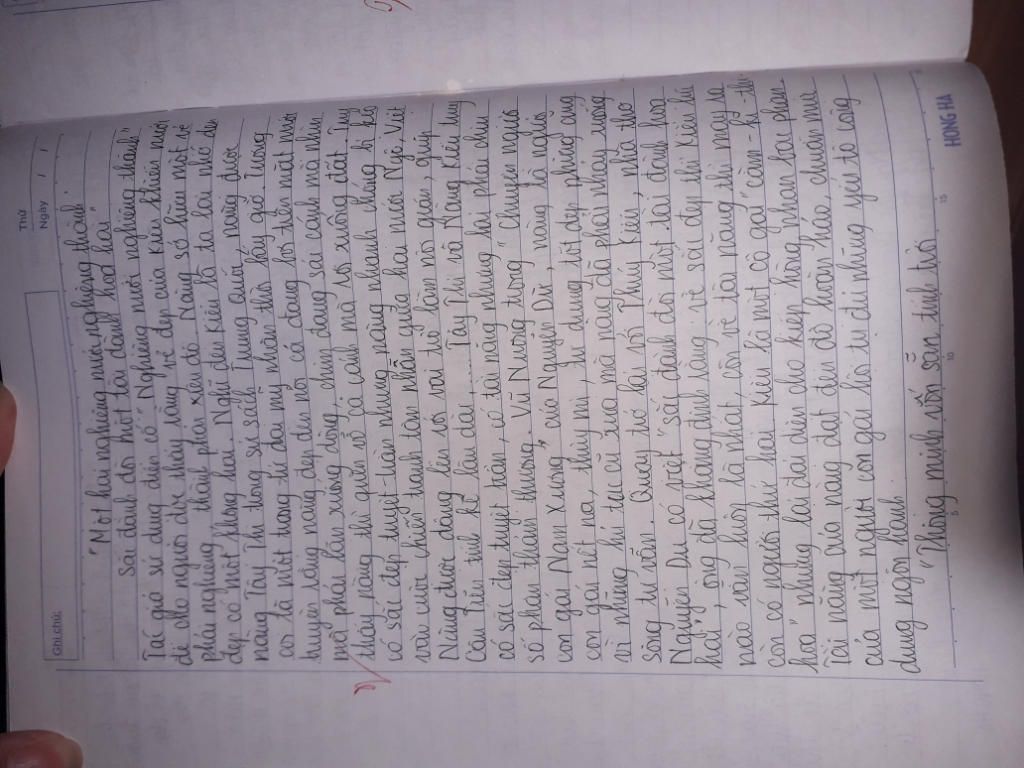 Thứ
Ngày / /
Ghi chú
"Một hai nghiêng nước nghiêng thành
Sắc đành đòi một tài đành hoạ hai"
Tác giả sử dụng điển cố "Nghiêng nước nghiêng thành"
để cho người đọc thấy rằng vẻ đẹp của Kiều khiến nước
phải nghiêng thành phải xiêu đổ. Nàng sở hữu một vẻ
đẹp có một không hai. Nghĩ đến Kiều là ta lại nhớ đến
nàng Tây Thi trong sử sách Trung Quốc, nàng được
coi là một trang tứ đại mỹ nhân thời bấy giờ. Tương
truyền rằng nàng đẹp đến nỗi cá đang bơi trên mặt nước
mà phải lặn xuống dòng, chim đang sải cánh mà nhìn
thấy nàng thì quên vỗ cả cánh mà rơi xuống đất. Tuy
có sắc đẹp tuyệt trần nhưng nàng nhanh chóng bị bỏ
vào cuộc chiến tranh tàn nhẫn giữa hai nước Ngô, Việt
Nàng được dâng lên với vai trò làm nội gián, giúp
Câu Tiễn tính kế lâu dài....... Tây Thi và Nàng Kiều tuy
có sắc đẹp tuyệt trần, có tài năng nhưng hai phải chịu
số phận thảm thương. Vũ Nương trong "Chuyện người
con gái Nam Xương" của Nguyễn Dữ, nàng là người
con gái nết na, thùy mị, tư dung tốt đẹp nhưng cũng
vì những hủ tục cũ xưa mà nàng đã phải nhảy xuống
sông tự vẫn. Quay trở lại với Thúy Kiều, nhà thơ
Nguyễn Du có viết "sắc đành đòi một tài đành hoạ
hai", ông đã khẳng định rằng về sắc đẹp thì Kiều chả
nào vẫn luôn là nhất, còn về tài năng thì may ra
còn có người thứ hai. Kiều là một cô gái "cầm - kì - thi -
hoạ" nhưng lại đại diện cho kiếp hồng nhan lại phận.
Tài năng của nàng đạt đến độ hoàn hảo, chuẩn mực
của một người con gái hội tụ đủ những yếu tố công
dung ngôn hạnh.
"Thông minh vốn sẵn tính trời
5 10 15
HONG HA